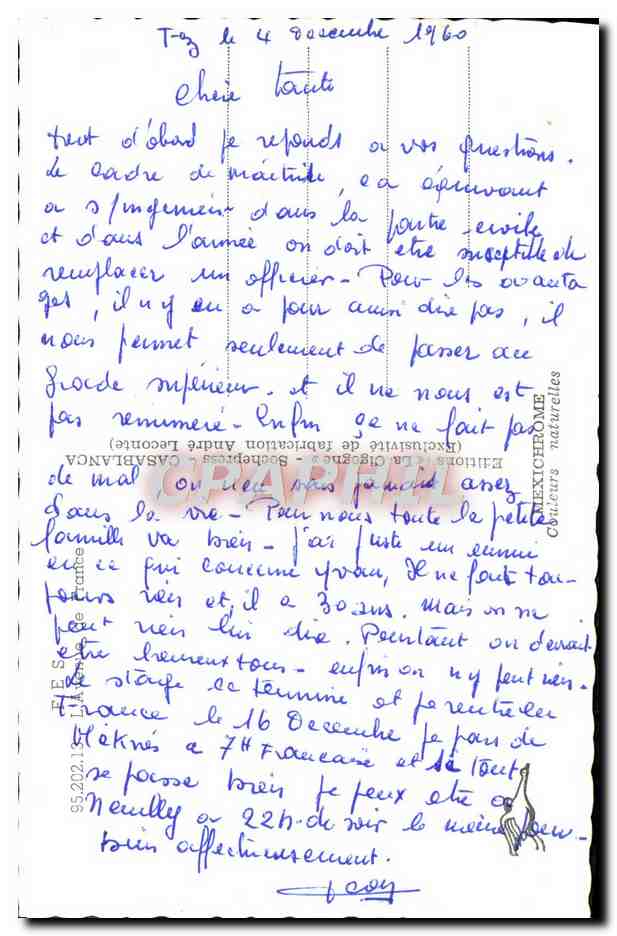 Fez le 4 Decembre 1960
Chère tante
tout d'abord je reponds a vos questions.
Le cadre de maitrise, ca équivaut
a s/ingenieur dans la partie civile
et dans l'armée on doit etre susceptible de
remplacer un officier - Pour les avanta
ges, il n'y en a pour ainsi dire pas, il
nous permet seulement de passer au
grade supérieur. et il ne nous est
pas remuneré - Enfin ça ne fait pas
de mal, on n'en sais jamais assez
dans la vie - Pour nous toute la petite
famille va bien - J'ai juste un ennui
en ce qui concerne yvan, Il ne fout tou-
jours rien et il a 30 ans. mais on ne
peut rien lui dire. Pourtant on devrait
etre heureux tous - enfin on n'y peut rien.
Le stage se termine et je rentre en
France le 16 Decembre je pars de
Meknés a 7H Francaise et si tout
se passe bien je peux etre a
Neuilly a 22h. du soir le même jour -
bien affectueusement.
MEXICHROME
Couleurs naturelles
Editions «La Cigogne» - Sochepress - CASABLANCA
(Exclusivité de fabrication André Leconte)
CPAPHIL
F. E. S.
95.202.13 - L'Avenue de France